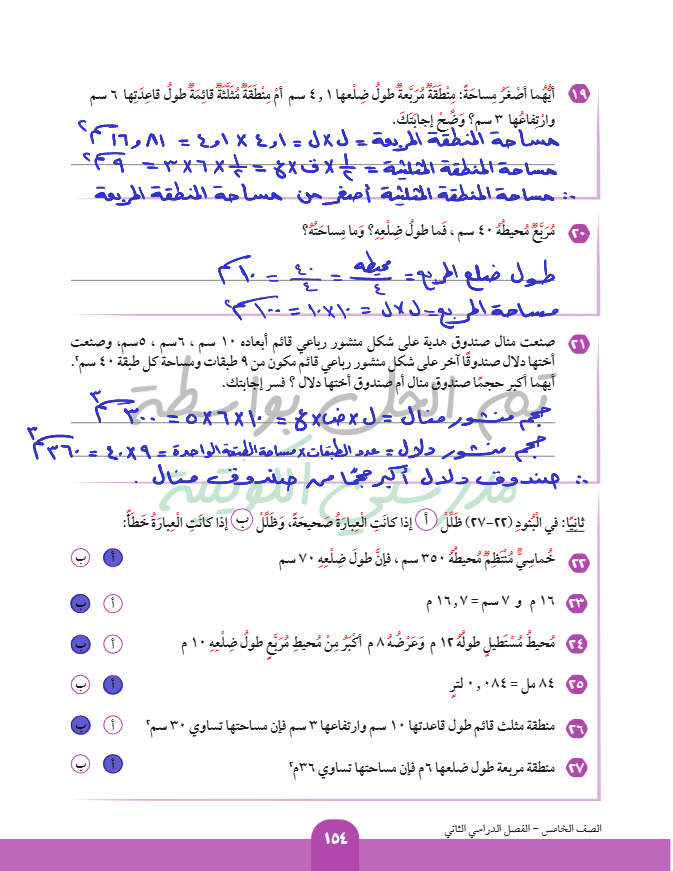 ١٩ أيُّهما أصْغَرُ مِساحَةً: مِنْطَقَةٌ مُرَبَّعةٌ طولُ ضِلْعِها ٤,١ سم أمْ مِنْطَقَةٌ مُثَلَّثَةٌ قائِمَةٌ طولُ قاعدَتِها ٦ سم
وارْتِفاعُها ٣ سم؟ وَضِّحْ إجابَتَكَ.
مساحة المنطقة المربعة = ل × ل = ٤,١ × ٤,١ = ١٦,٨١ سم٢
مساحة المنطقة المثلثية = ١/٢ × ق × ع = ١/٢ × ٦ × ٣ = ٩ سم٢
∴ مساحة المنطقة المثلثية أصغر من مساحة المنطقة المربعة
٢٠ مُرَبَّعٌ مُحيطُهُ ٤٠ سم ، فَما طولُ ضِلْعِهِ؟ وَما مِساحَتُهُ؟
طول ضلع المربع = محيطه/٤ = ٤٠/٤ = ١٠ سم
مساحة المربع = ل × ل = ١٠ × ١٠ = ١٠٠ سم٢
٢١ صنعت منال صندوق هدية على شكل منشور رباعي قائم أبعاده ١٠ سم ، ٦سم ، ٥سم، وصنعت
أختها دلال صندوقًا آخر على شكل منشور رباعي قائم مكون من ٩ طبقات ومساحة كل طبقة ٤٠ سم٢.
أيهما أكبر حجمًا صندوق منال أم صندوق أختها دلال ؟ فسر إجابتك.
تم الحل بواسطة
حجم منشور منال = ل × ض × ع = ١٠ × ٦ × ٥ = ٣٠٠ سم٣
حجم منشور دلال = عدد الطبقات × مساحة الطبقة الواحدة = ٩ × ٤٠ = ٣٦٠ سم٣
∴ صندوق دلال أكبر حجمًا من صندوق منال .
مدرستي الكويتية
ثانيًا: في الْبُنودِ (٢٢-٢٧) ظَلِّلْ أ إذا كانَتِ الْعِبارَةُ صَحيحَةً، وَظَلِّلْ ب إذا كانَتِ الْعِبارَةُ خَطَأً:
٢٢ خُماسِيٌّ مُنْتَظِمٌ مُحيطُهُ ٣٥٠ سم ، فإنَّ طولَ ضِلْعِهِ ٧٠ سم أ ب
٢٣ ١٦ م و ٧ سم = ١٦,٧ م أ ب
٢٤ مُحيطُ مُسْتَطيلٍ طولُهُ ١٢ م وَعَرْضُهُ ٨ م أكْبَرُ مِنْ مُحيطِ مُرَبَّعٍ طولُ ضِلْعِهِ ١٠ م أ ب
٢٥ ٨٤ مل = ٠,٠٨٤ لترٍ أ ب
٢٦ منطقة مثلث قائم طول قاعدتها ١٠ سم وارتفاعها ٣ سم فإن مساحتها تساوي ٣٠ سم٢ أ ب
٢٧ منطقة مربعة طول ضلعها ٦م فإن مساحتها تساوي ٣٦م٢ أ ب
الصف الخامس – الفصل الدراسي الثاني
١٥٤